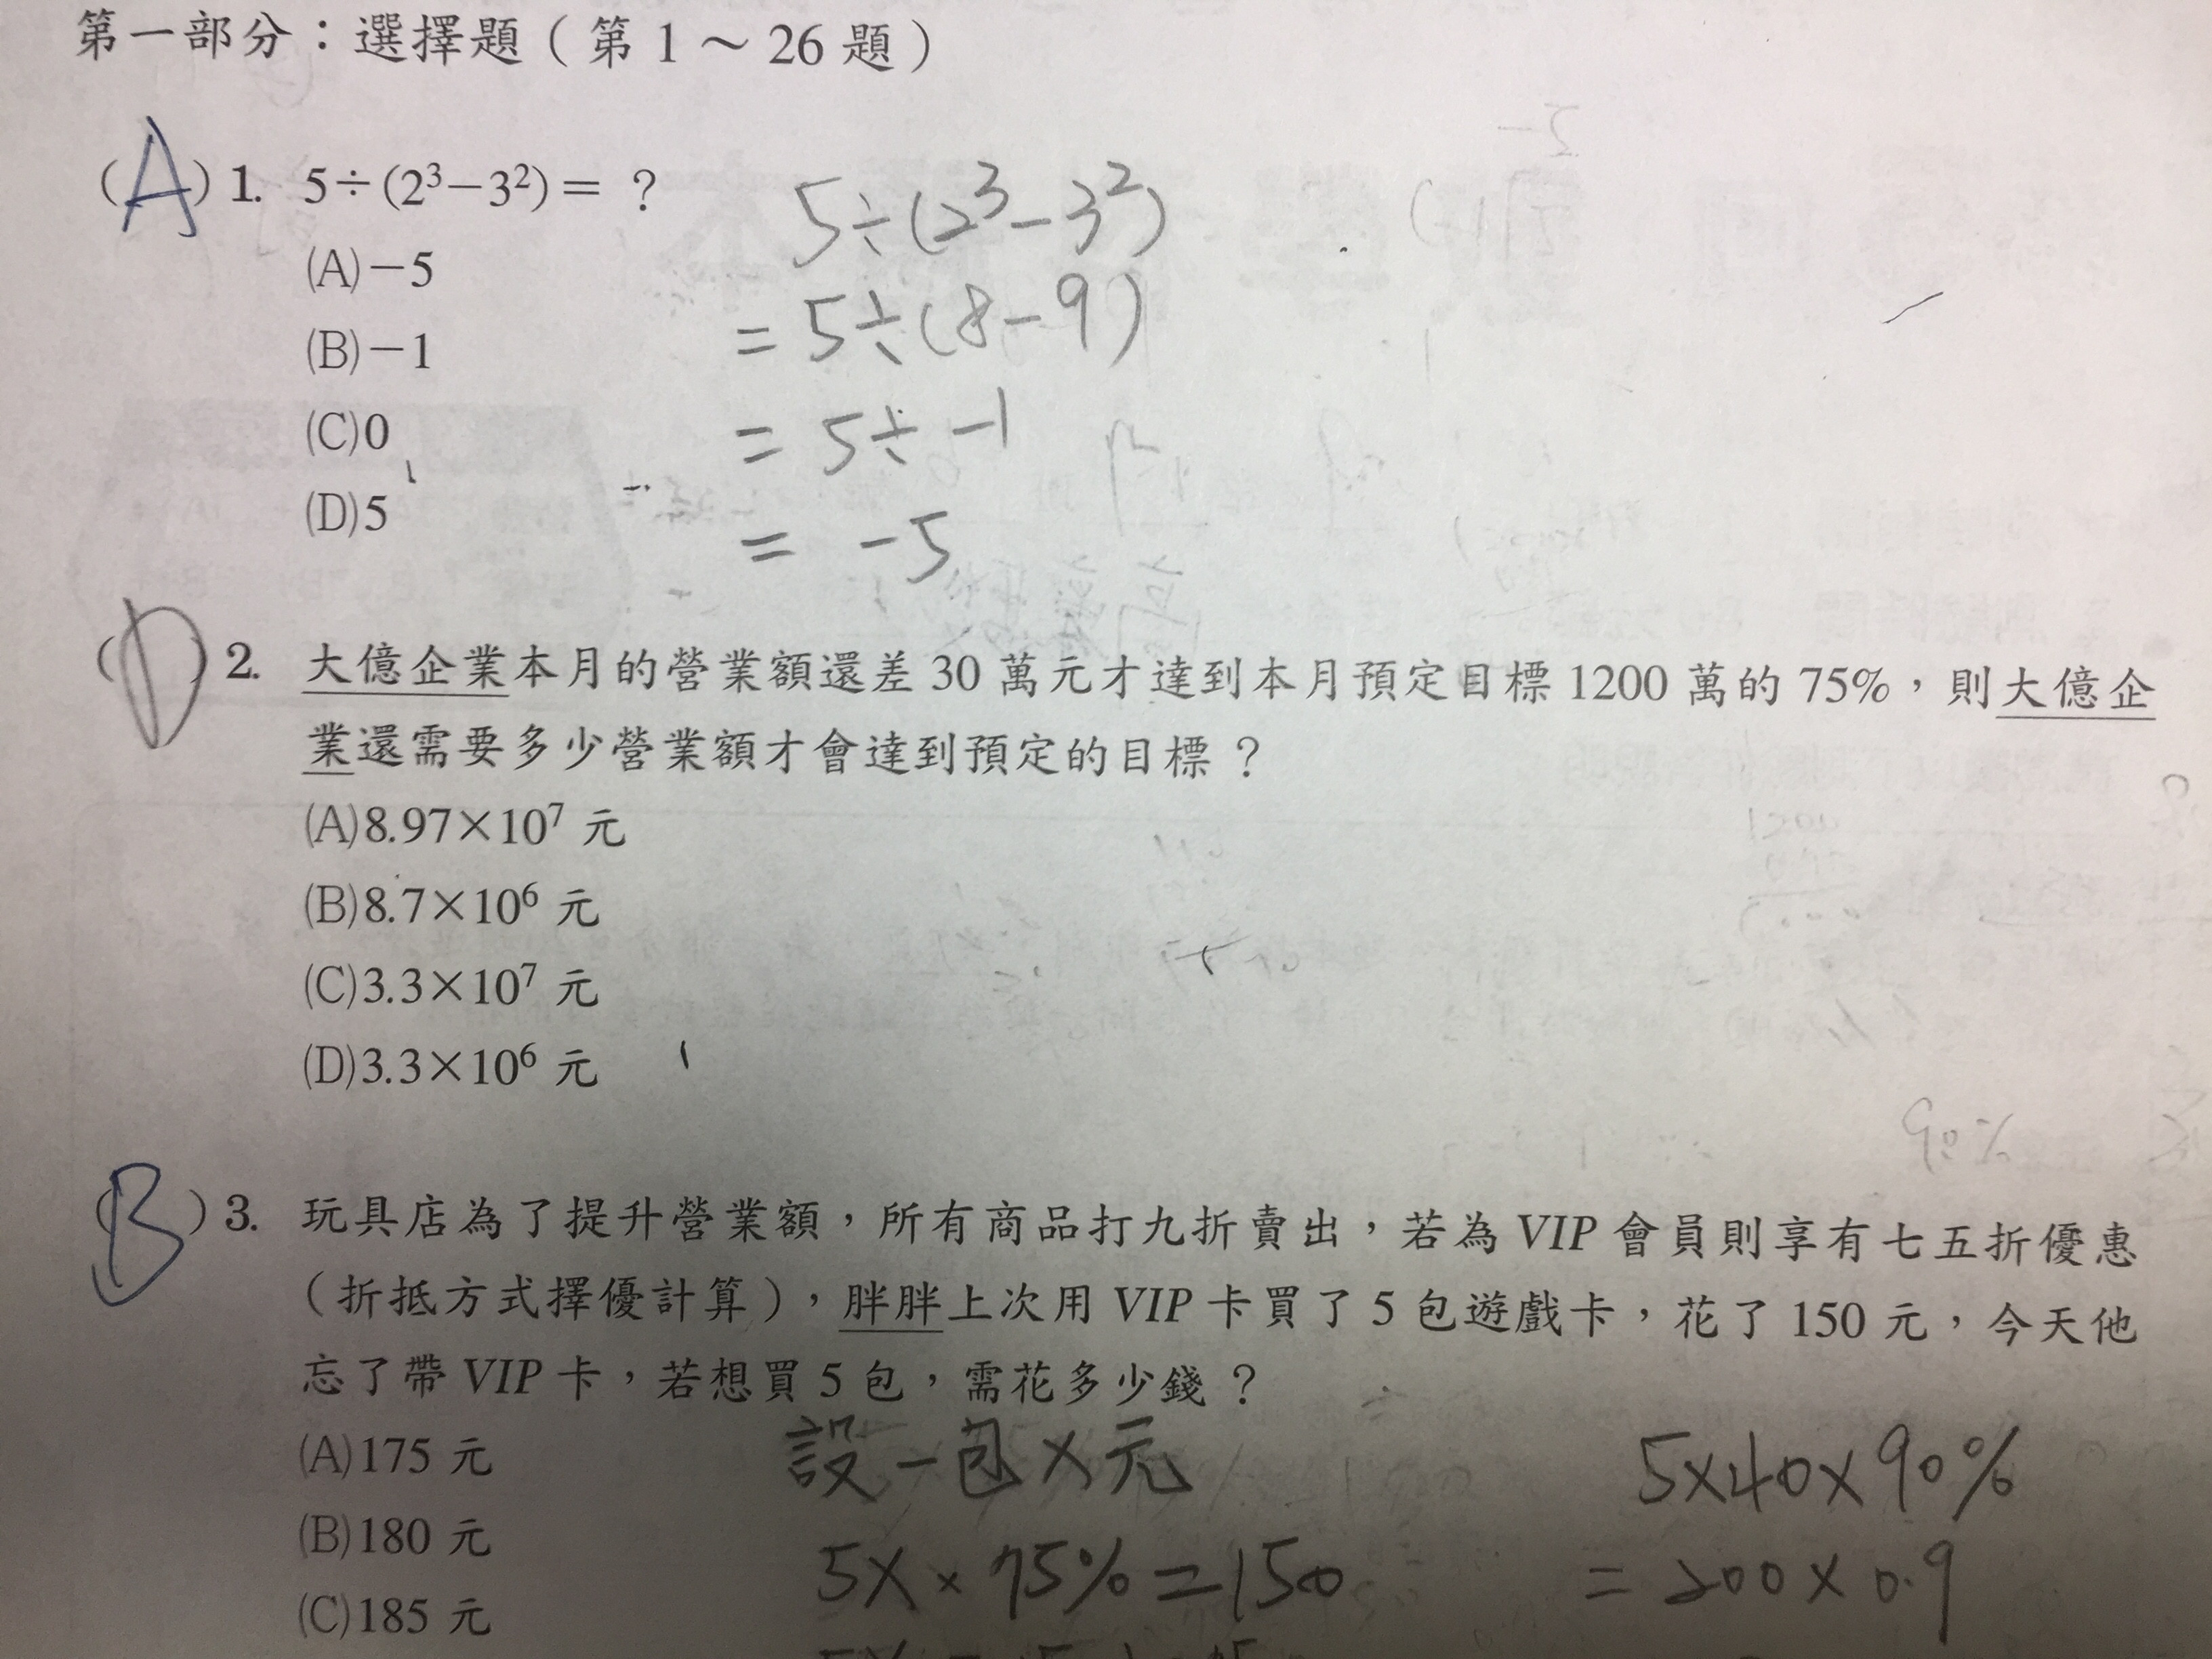 第一部分：選擇題（第 1 ～ 26 題）
(A) 1. 5÷(2³−3²)＝？
(A)−5
(B)−1
(C)0
(D)5
5÷(2³−3²)
=5÷(8−9)
=5÷−1
=−5
(D) 2. 大億企業本月的營業額還差 30 萬元才達到本月預定目標 1200 萬的 75%，則大億企
業還需要多少營業額才會達到預定的目標？
(A)8.97×10⁷ 元
(B)8.7×10⁶ 元
(C)3.3×10⁷ 元
(D)3.3×10⁶ 元
(B) 3. 玩具店為了提升營業額，所有商品打九折賣出，若為 VIP 會員則享有七五折優惠
（折抵方式擇優計算），胖胖上次用 VIP 卡買了 5 包遊戲卡，花了 150 元，今天他
忘了帶 VIP 卡，若想買 5 包，需花多少錢？
(A)175 元
(B)180 元
(C)185 元
設一包X元
5X×75%=150
5×40×90%
=200×0.9